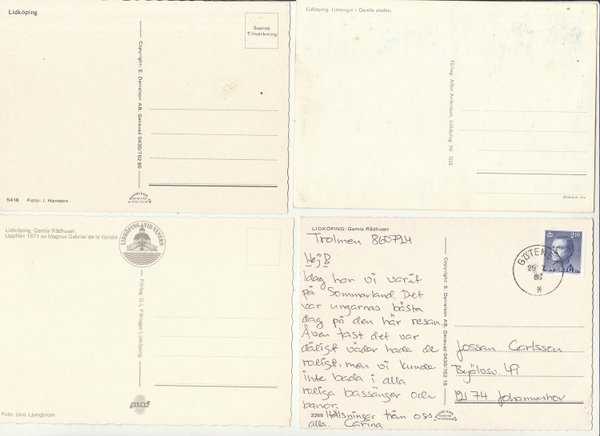 Lidköping
Svensk
Tillverkning
Copyright: E. Danielson AB, Genevad 0430/702 90
5418 Foto: I. Hansson
Lidköping. Limtorget i Gamla staden.
Förlag: Albin Andersson, Lidköping. Nr 1352
Lidköping, Gamla Rådhuset.
Uppfört 1671 av Magnus Gabriel de la Gardie
LIDKÖPING VID VÄNERN
Förlag: G-L Förlaget Lidköping
Foto: Uno Ljungblom
LIDKÖPING: Gamla Rådhuset.
Trolmen 860724
Hej B
Idag har vi varit
på Sommarland. Det
var ungarnas bästa
dag på den här resan
Även fast det var
dåligt väder hade de
roligt, men vi kunde
inte bada i alla
roliga bassänger och
banor.
3266 Hälsningar från oss
alla. Carina
Copyright: E. Danielson AB, Genevad 0430/702 18
SVERIGE 2.10
GÖTENE
Jossan Carlsson
49
121 74 Johanneshov